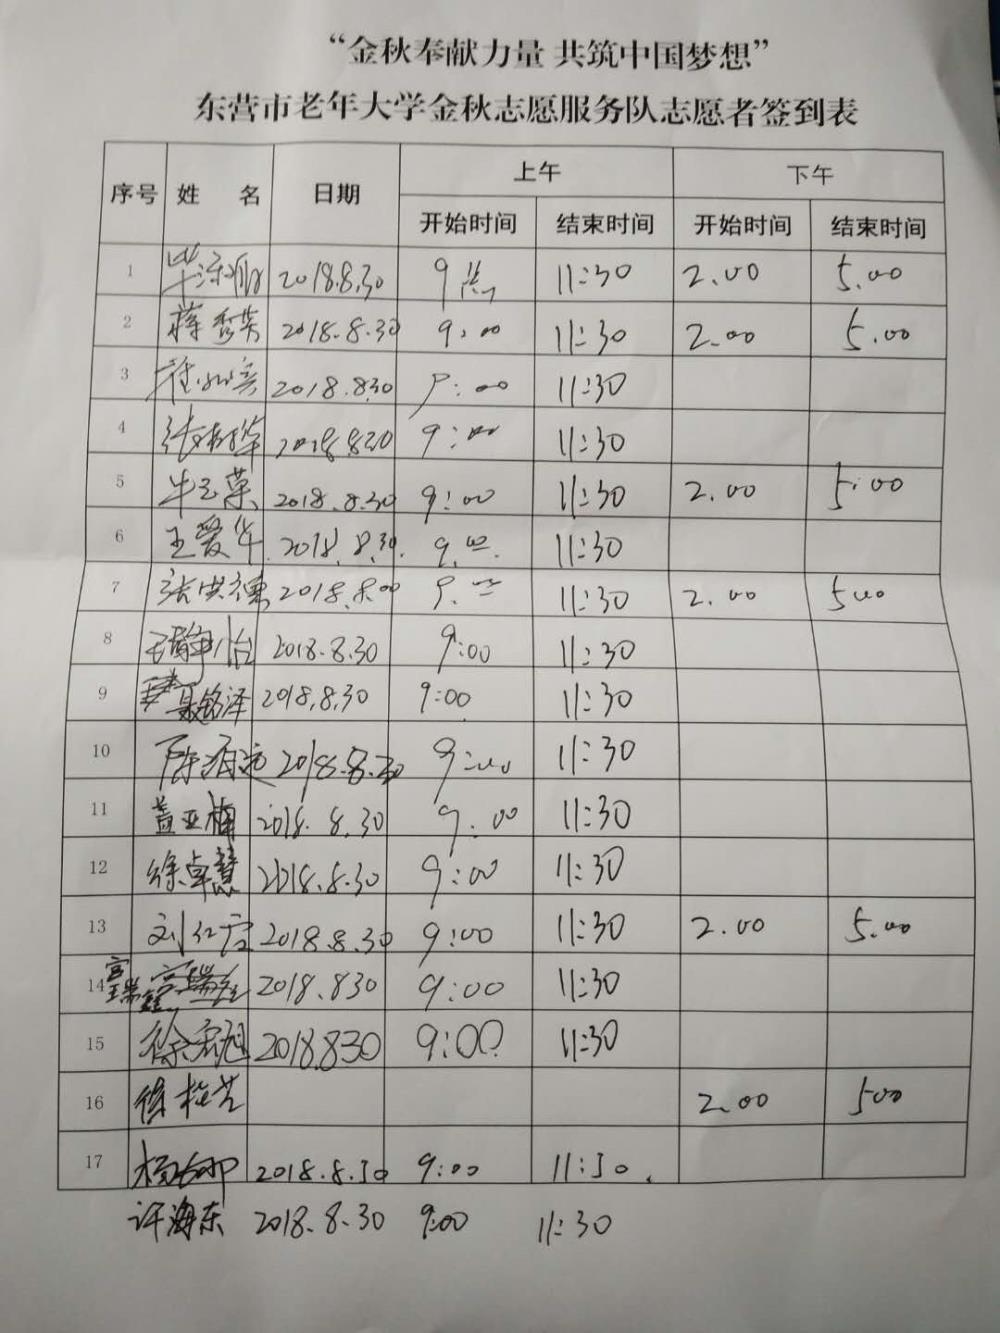 “金秋奉献力量 共筑中国梦想”
东营市老年大学金秋志愿服务队志愿者签到表
序号 姓 名 日期 上午 下午
开始时间 结束时间 开始时间 结束时间
1 2018.8.30 9点 11:30 2.00 5.00
2 蒋秀英 2018.8.30 9:00 11:30 2.00 5.00
3 2018.8.30 9:00 11:30
4 2018.8.30 9:00 11:30
5 牛玉荣 2018.8.30 9:00 11:30 2.00 5:00
6 王爱华 2018.8.30. 9.00. 11:30
7 张洪德 2018.8.00 9.00 11:30 2.00 500
8 王静怡 2018.8.30 9:00 11:30
9 聂铭泽 2018.8.30 9:00 11:30
10 2018.8.30 9:00 11:30
11 盖亚楠 2018.8.30 9:00 11:30
12 徐卓慧 2018.8.30 9:00 11:30
13 刘红 2018.8.30 9:00 11:30 2.00 5.00
14 宫瑞鑫 2018.830 9:00 11:30
15 徐宏旭 2018.830 9:00 11:30
16 2.00 500
17 2018.8.30 9:00 11:30.
许海东 2018.8.30 9:00 11:30